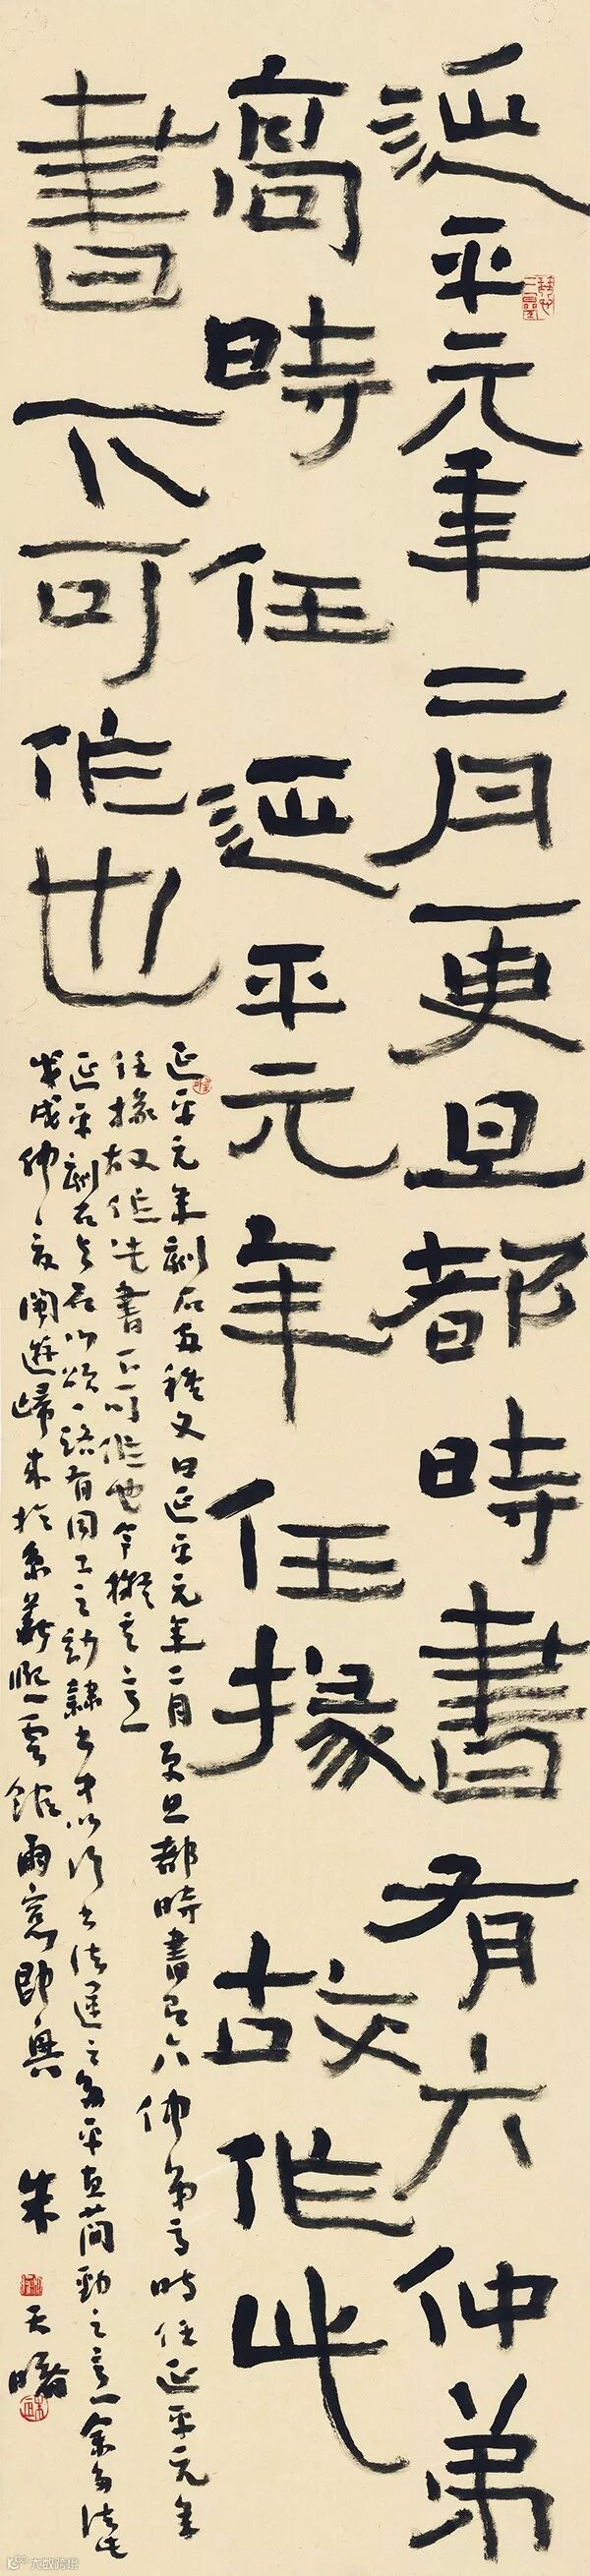 延平元年二月更旦都時書有六仲弟
高時任延平元年任掾故作此
書不可作也
延平元年刻石兩種文曰延平元年二月更旦都時書有六仲弟高時任延平元年
任掾故作此書不可作也今擬其意
延平刻石與石門頌一路有同工之妙隸書才以行書法運之多平直簡勁之意余每法此
戊戌仲夏閩遊歸來於京華熙雲館雨窗即興
朱天曙